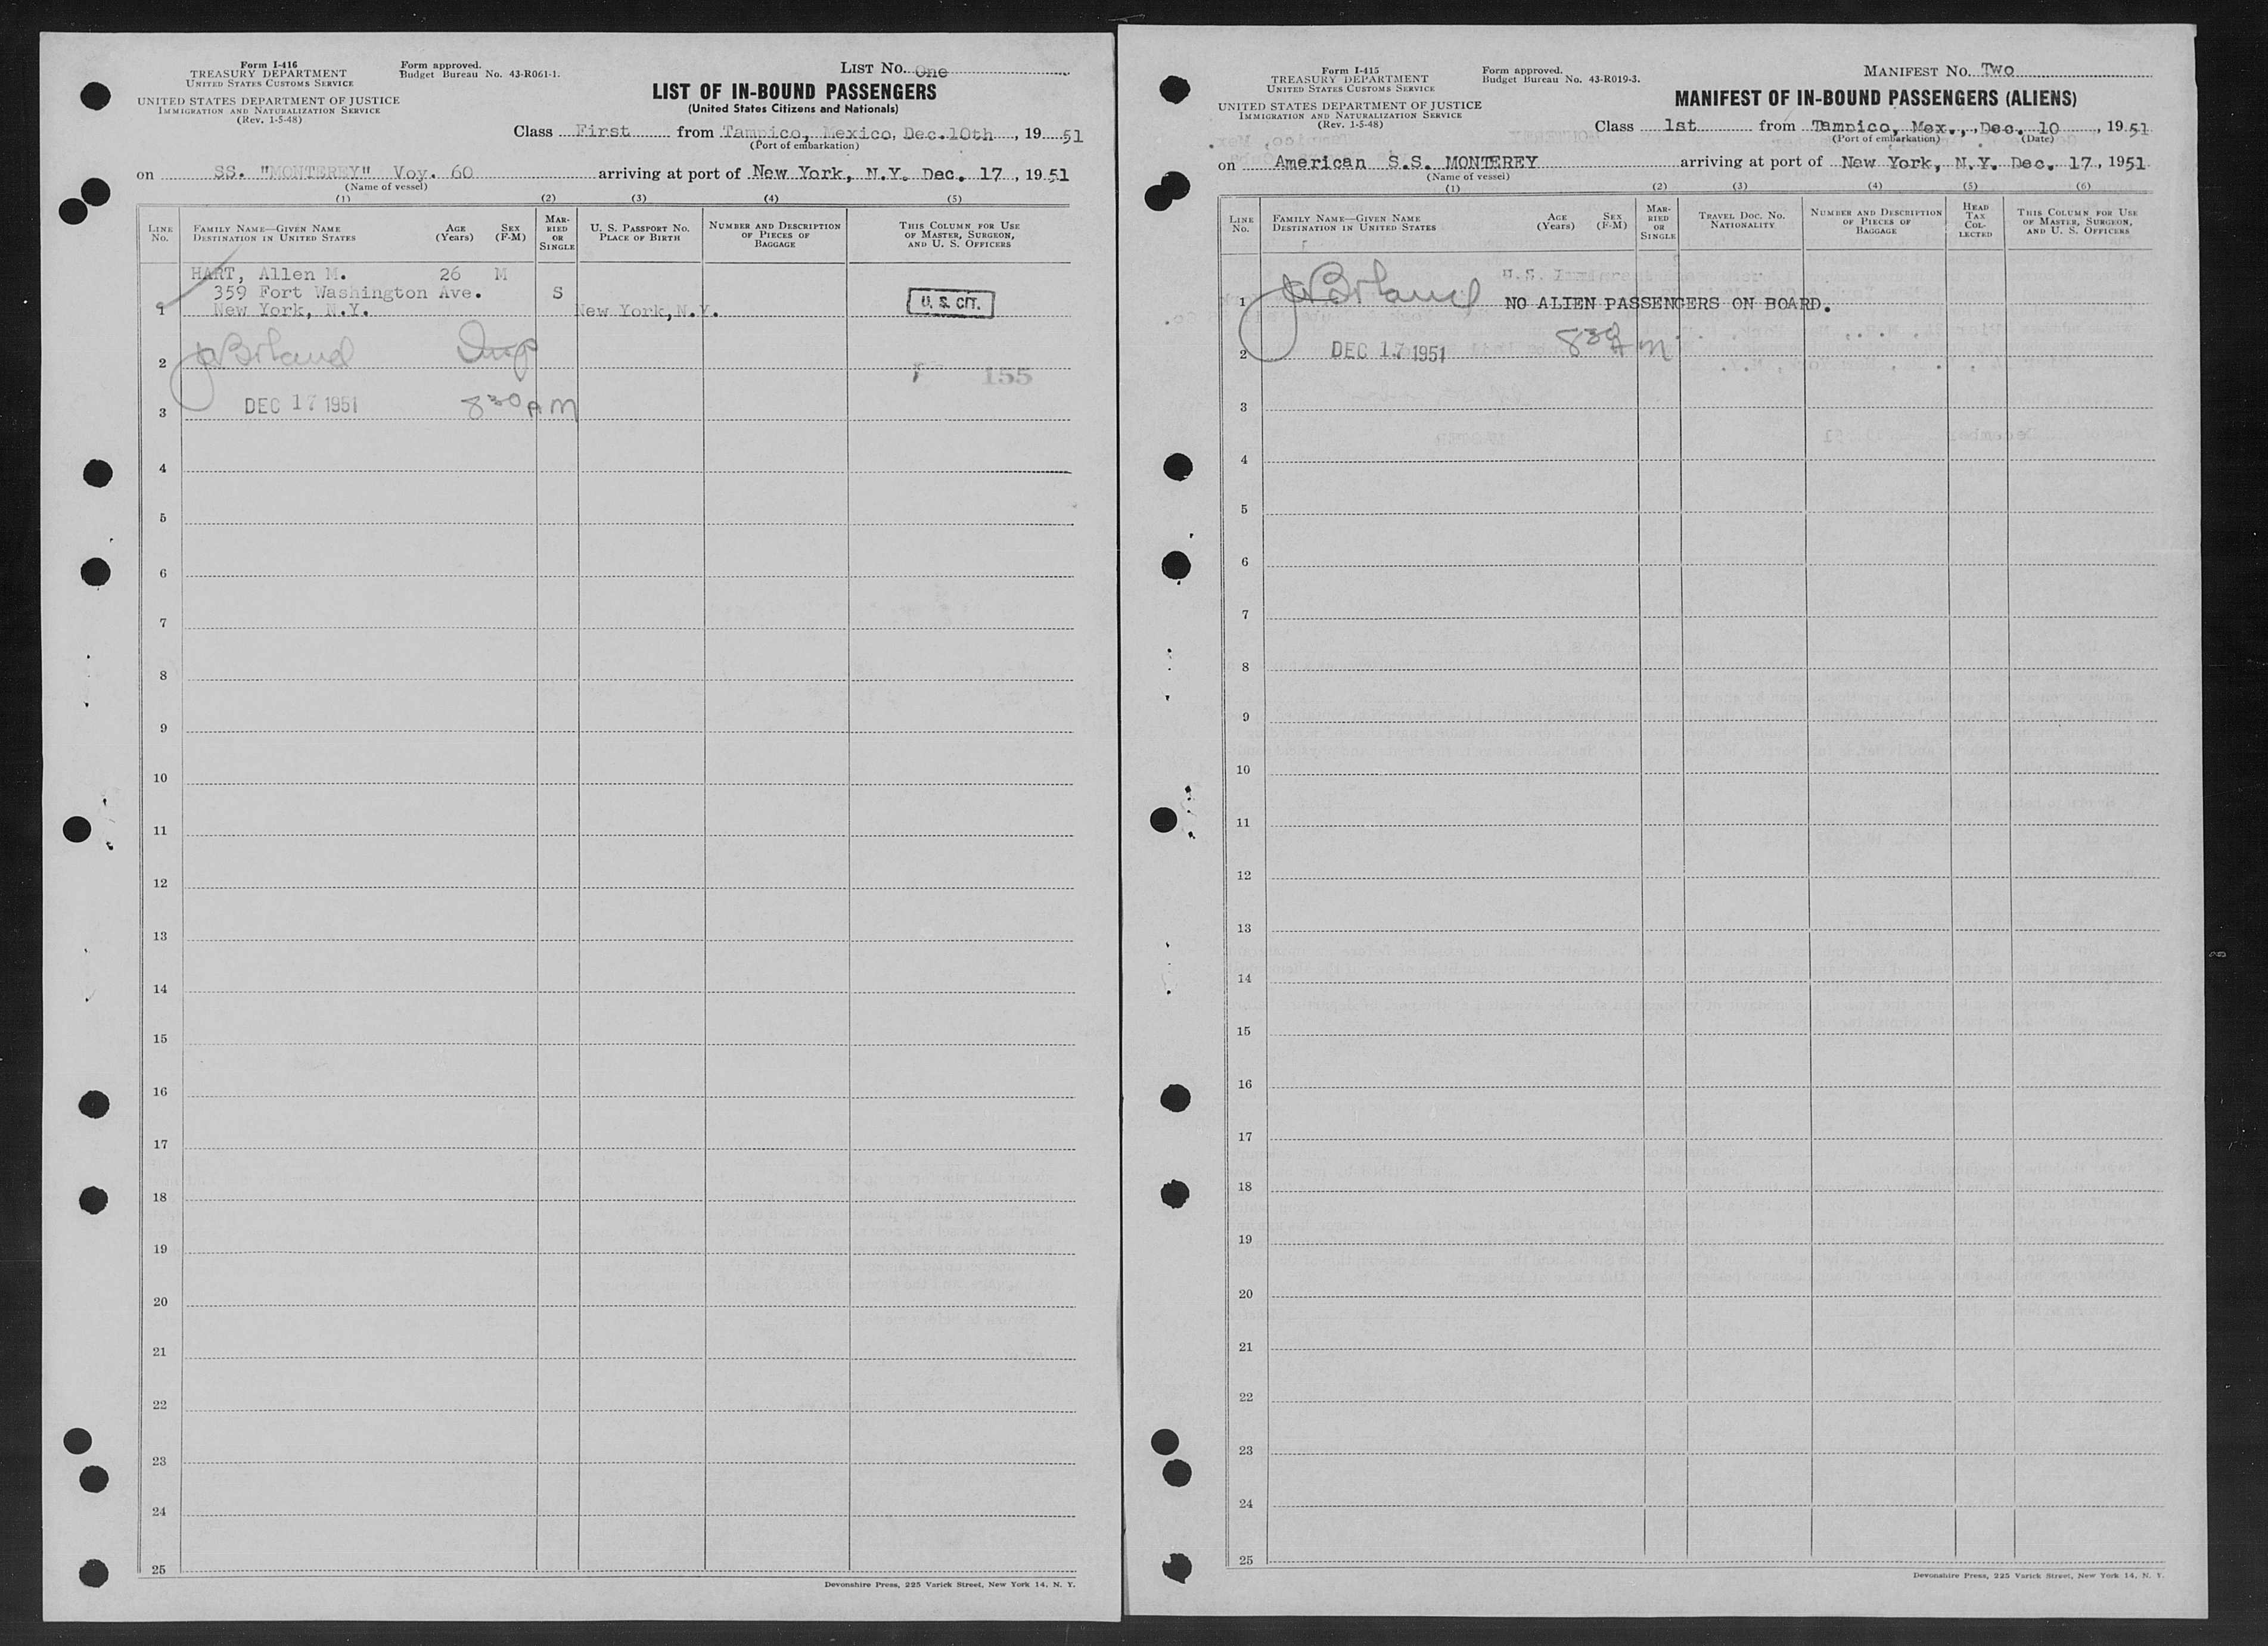 Form I-416
TREASURY DEPARTMENT
UNITED STATES CUSTOMS SERVICE
UNITED STATES DEPARTMENT OF JUSTICE
IMMIGRATION AND NATURALIZATION SERVICE
(Rev. 1-5-48)
Form approved.
Budget Bureau No. 43-R061-1.
LIST NO. One
LIST OF IN-BOUND PASSENGERS
(United States Citizens and Nationals)
Class First from Tampico, Mexico, Dec.10th, 1951
(Port of embarkation)
on SS. "MONTEREY" Voy. 60 arriving at port of New York, N.Y. Dec. 17, 1951
(Name of vessel)
(1) (2) (3) (4) (5)
LINE NO.
FAMILY NAME—GIVEN NAME
DESTINATION IN UNITED STATES
AGE (Years)
SEX (F-M)
MARRIED OR SINGLE
U. S. PASSPORT NO.
PLACE OF BIRTH
NUMBER AND DESCRIPTION OF PIECES OF BAGGAGE
THIS COLUMN FOR USE OF MASTER, SURGEON, AND U. S. OFFICERS
HART, Allen M. 26 M
359 Fort Washington Ave. S
1 New York, N.Y. New York, N.Y. U. S. CIT.
2 JW Borland Insp
155
3 DEC 17 1951 830 AM
4
5
6
7
8
9
10
11
12
13
14
15
16
17
18
19
20
21
22
23
24
25
Devonshire Press, 225 Varick Street, New York 14, N. Y.
Form I-415
TREASURY DEPARTMENT
UNITED STATES CUSTOMS SERVICE
UNITED STATES DEPARTMENT OF JUSTICE
IMMIGRATION AND NATURALIZATION SERVICE
(Rev. 1-5-48)
Form approved.
Budget Bureau No. 43-R019-3.
MANIFEST NO. Two
MANIFEST OF IN-BOUND PASSENGERS (ALIENS)
Class 1st from Tampico, Mex., Dec. 10, 1951
(Port of embarkation) (Date)
on American S.S. MONTEREY arriving at port of New York, N.Y. Dec. 17, 1951
(Name of vessel)
(1) (2) (3) (4) (5) (6)
LINE NO.
FAMILY NAME—GIVEN NAME
DESTINATION IN UNITED STATES
AGE (Years)
SEX (F-M)
MARRIED OR SINGLE
TRAVEL DOC. NO.
NATIONALITY
NUMBER AND DESCRIPTION OF PIECES OF BAGGAGE
HEAD TAX COLLECTED
THIS COLUMN FOR USE OF MASTER, SURGEON, AND U. S. OFFICERS
1 JW Borland NO ALIEN PASSENGERS ON BOARD.
2 DEC 17 1951 830 AM
3
4
5
6
7
8
9
10
11
12
13
14
15
16
17
18
19
20
21
22
23
24
25
Devonshire Press, 225 Varick Street, New York 14, N. Y.